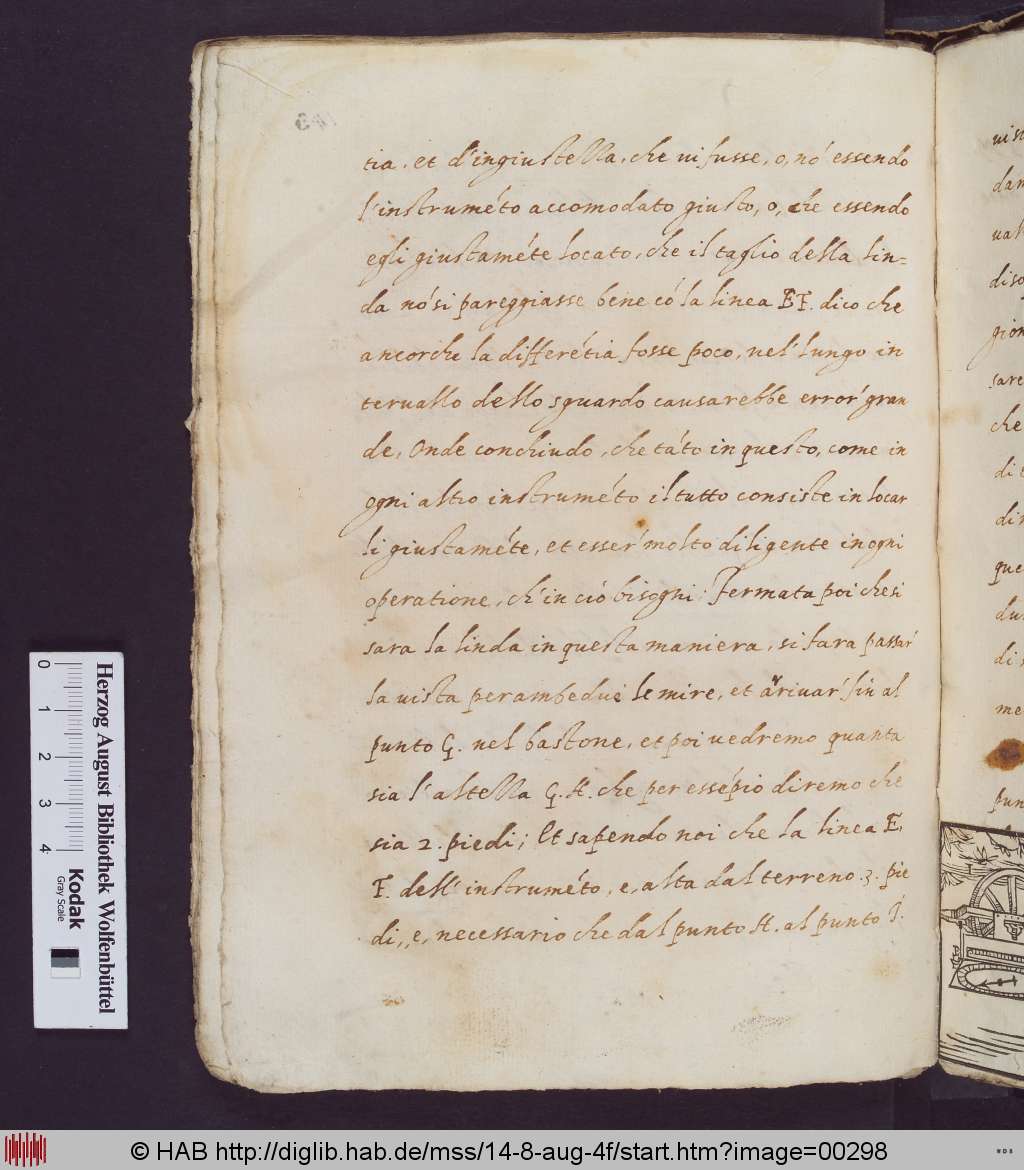 tia. et d'ingiustezza, che vi fusse, o, nó essendo
l'instruméto accomodato giusto, o, che essendo
egli giustaméte locato, che il taglio della lin=
da nó si pareggiasse bene có la linea EF. dico che
ancorche la differétia fosse poco, nel lungo in
teruallo dello sguardo causarebbe error' gran
de, Onde conchiudo, che táto in questo, come in
ogni altro instruméto il tutto consiste in locar
li giustaméte, et esser' molto diligente in ogni
operatione, ch' in ció bisogni: Fermata poi che si
sara la linda in questa maniera, si fara passar'
la uista per ambedue le mire, et arriuar' sin al
punto G. nel bastone, et poi uedremo quanta
sia l'altezza G. H. che per essépio diremo che
sia 2. piedi; Et sapendo noi che la linea E.
F. dell' instruméto, e, alta dal terreno .3. pie
di,, e, necessario che dal punto H. al punto I.
ual
diso
gion
sare
che
di
que
du
di
me
pun
Herzog August Bibliothek Wolfenbüttel
Kodak
Gray Scale
0 1 2 3 4
© HAB http://diglib.hab.de/mss/14-8-aug-4f/start.htm?image=00298